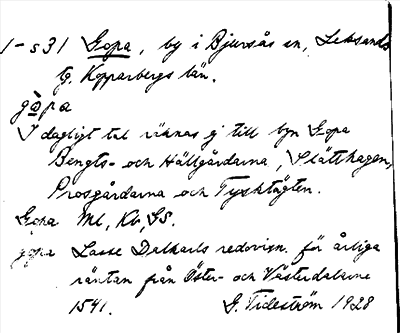 1-s31 Gopa, by i Bjursås sn, Leksands
tg. Kopparbergs län.
gò̱pa
I dagligt tal räknas ej till byn Gopa
Bengts- och Hällgårdarna, Slätthagen,
Prosgårdarna och Tysktägten.
Gopa Ml, Kb, GS.
gopa Lasse Dalkarls redovisn. för årliga
räntan från Öster- och Västerdalarne
1541. G. Tideström 1928